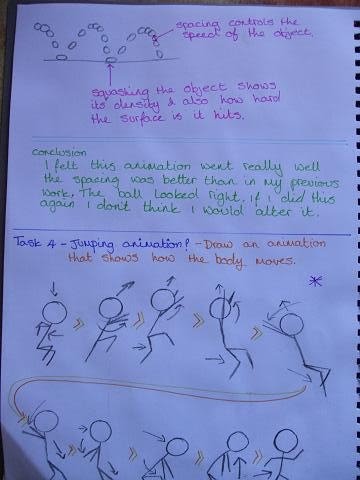 spacing controls the
speed of the object.
squashing the object shows
its density & also how hard
the surface is it hits.
conclusion
I felt this animation went really well
the spacing was better than in my previous
work. The ball looked right, if I did this
again I don't think I would alter it.
Task 4 - Jumping animation! - Draw an animation
that shows how the body moves.